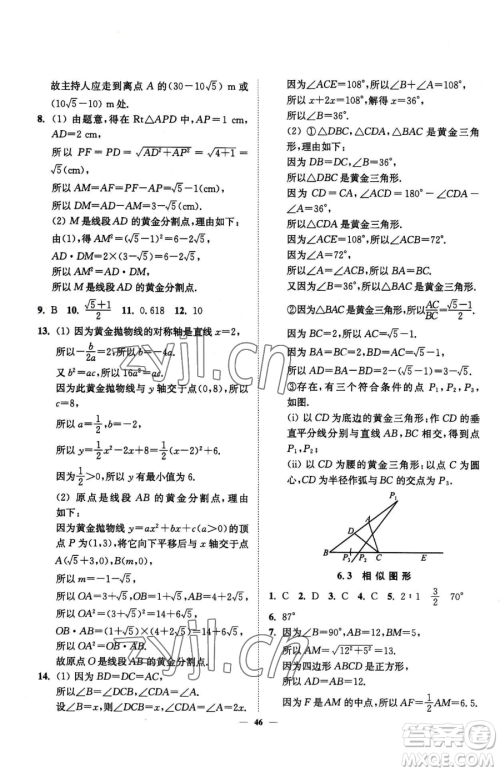 故主持人应走到离点 A 的(30-10√5) m 或
(10√5-10) m 处.
8. (1) 由题意,得在 Rt△APD 中,AP=1 cm,
AD=2 cm,
所以 PF=PD=√(AD²+AP²)=√(4+1)
=√5(cm),
所以 AM=AF=PF-PA=(√5-1)cm,
所以 DM=AD-AM=(3-√5)cm.
(2) M 是线段 AD 的黄金分割点,理由如下:
由(1)得,AM²=(√5-1)²=6-2√5,
AD·DM=2×(3-√5)=6-2√5,
所以 AM²=AD·DM,
所以 M 是线段 AD 的黄金分割点.
9. B 10. (√5+1)/2 11. 0.618 12. 10
13. (1) 因为黄金抛物线的对称轴是直线 x=2,
所以-b/2a=2,所以 b=-4a.
又 b²=ac,所以 16a²=ac.
因为此黄金抛物线与 y 轴交于点(0,8),所以
c=8,
所以 a=1/2,b=-2,
所以 y=1/2x²-2x+8=1/2(x-2)²+6.
因为 1/2>0,所以 y 有最小值为 6.
(2) 原点是线段 AB 的黄金分割点,理由如下:
因为黄金抛物线 y=ax²+bx+c(a≠0)与 x 轴
交于点
A(√5+3,0),B(-4-2√5,0),
所以 OA=3+√5,OB=4+2√5,
所以 OA²=(3+√5)²=14+6√5,
OB·AB=(√5+1)
所以 OA²=OB·AB,
故原点 O 是线段 AB 的黄金分割点.
15. (1) 因为 BD=DC=AC,
所以∠B=∠DCB,∠CDA=∠A.
设∠B=x,则∠DCB=x,∠CDA=∠A=2x.
因为∠ACE=108°,所以∠B+∠A=108°,
所以 x+2x=108°,解得 x=36°,
所以∠B=36°.
(2) ①△DBC,△CDA,△ABC 是黄金三角形,
理由如下:
因为 DB=DC,∠B=36°,
所以△DBC 是黄金三角形.
因为 CD=CA,∠ACD=180°-∠CDA-
∠A=36°,
所以△CDA 是黄金三角形.
因为∠ACE=108°,所以∠ACB=72°.
又因为∠A=72°,
所以∠A=∠ACB,所以 BA=BC,
所以△BAC 是黄金三角形.
②因为△BAC 是黄金三角形,所以AC/BC=(√5-1)/2.
因为 BC=2,所以 AC=√5-1.
因为 BA=BC=2,BD=AC=√5-1,
所以 AD=BA-BD=2-(√5-1)=3-√5.
③存在,有三个符合条件的点 P₁,P₂,P₃,
如图.
(ⅰ) 以 CD 为底边的黄金三角形:作 CD 的垂
直平分线分别与直线 AB,BC 交于点 P₁,P₂.
(ⅱ) 以 CD 为腰的黄金三角形:以点 C 为圆心,
CD 为半径作弧与 BC 的交点为 P₃.
P₁
A
D
B P₃ P₂ C E
6.3 相似图形
1. C 2. D 3. C 4. C 5. 2∶1 3/2 70°
6. 87°
7. 因为∠B=90°,AB=12,BM=5,
所以 AM=√(12²+5²)=13.
因为四边形 ABCD 是正方形,
所以 AD=AB=12.
因为 F 是 AM 的中点,所以 AF=1/2AM=6.5.
46
zyjl.cn
zyjl.cn
答案圈
MXQE.COM